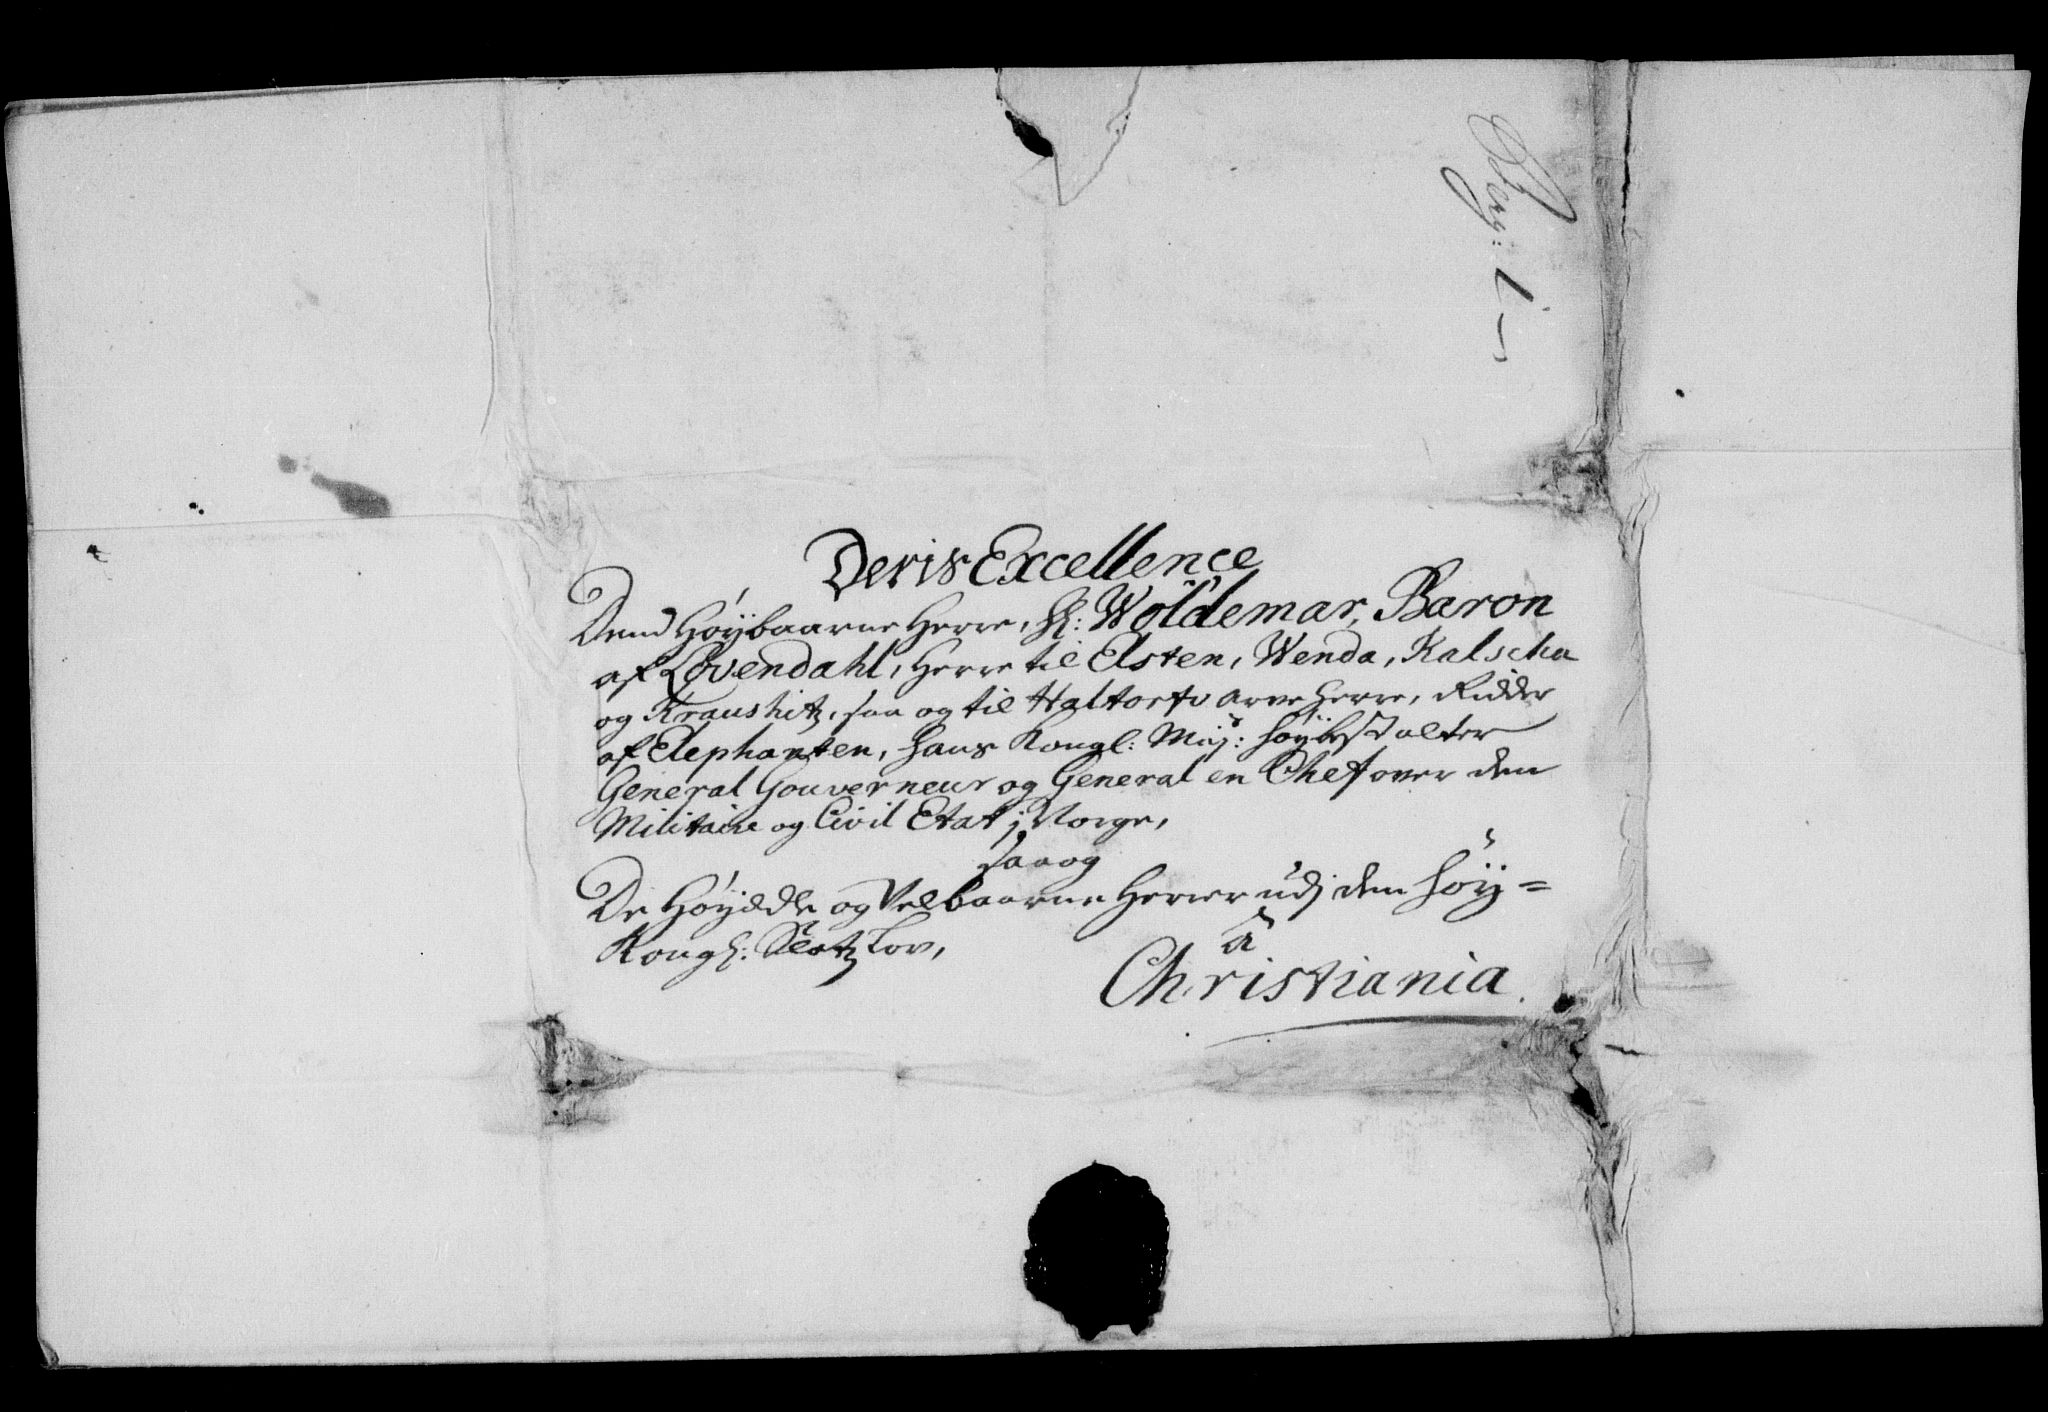 Deris Excellence
Dend Høÿbaarne Herre, H: Woldemar, Baron
af Løvendahl, Herre til Elsten, Wenda, Kalscha
og Kraushitz, saa og til Haltorff Arve Herre, Ridder
af Elephanten, hans Kongl: Maj: høÿbestalter
General Gouverneur og General en Chef over den
Militaire og Civil Etat i Norge,
saa og
De Høÿædle og Velbaarne Herrer udj den høÿ=
Kongl: Slotz Lov,
â
Christiania.